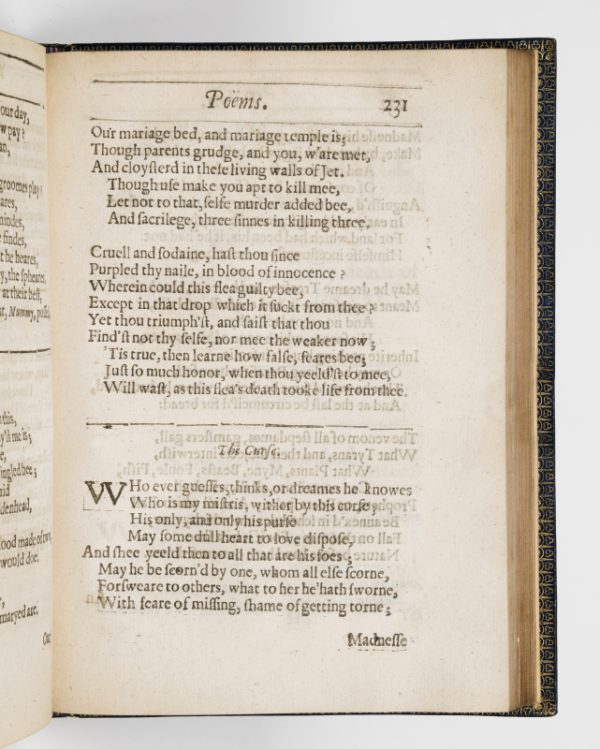 our day,
w pay?
an,
groomes play?
ares,
mindes,
e findes,
t he heares,
y, the spheares,
at their best,
t, Mummy, posse
this,
y'st me is;
e,
ingled bee;
aid
denhead,
ood made of two,
would doe.
e,
maryed are.
Our
Poëms. 231
Our mariage bed, and mariage temple is;
Though parents grudge, and you, w'are met,
And cloysterd in these living walls of Jet.
Though use make you apt to kill mee,
Let not to that, selfe murder added bee,
And sacrilege, three sinnes in killing three.
Cruell and sodaine, hast thou since
Purpled thy naile, in blood of innocence?
Wherein could this flea guilty bee,
Except in that drop which it suckt from thee?
Yet thou triumph'st, and saist that thou
Find'st not thy selfe, nor mee the weaker now;
'Tis true, then learne how false, feares bee;
Just so much honor, when thou yeeld'st to mee,
Will wast, as this flea's death tooke life from thee.
The Curse.
WHo ever guesses, thinks, or dreames he knowes
Who is my mistris, wither by this curse;
His only, and only his purse
May some dull heart to love dispose,
And shee yeeld then to all that are his foes;
May he be scorn'd by one, whom all else scorne,
Forsweare to others, what to her he'hath sworne,
With feare of missing, shame of getting torne;
Madnesse